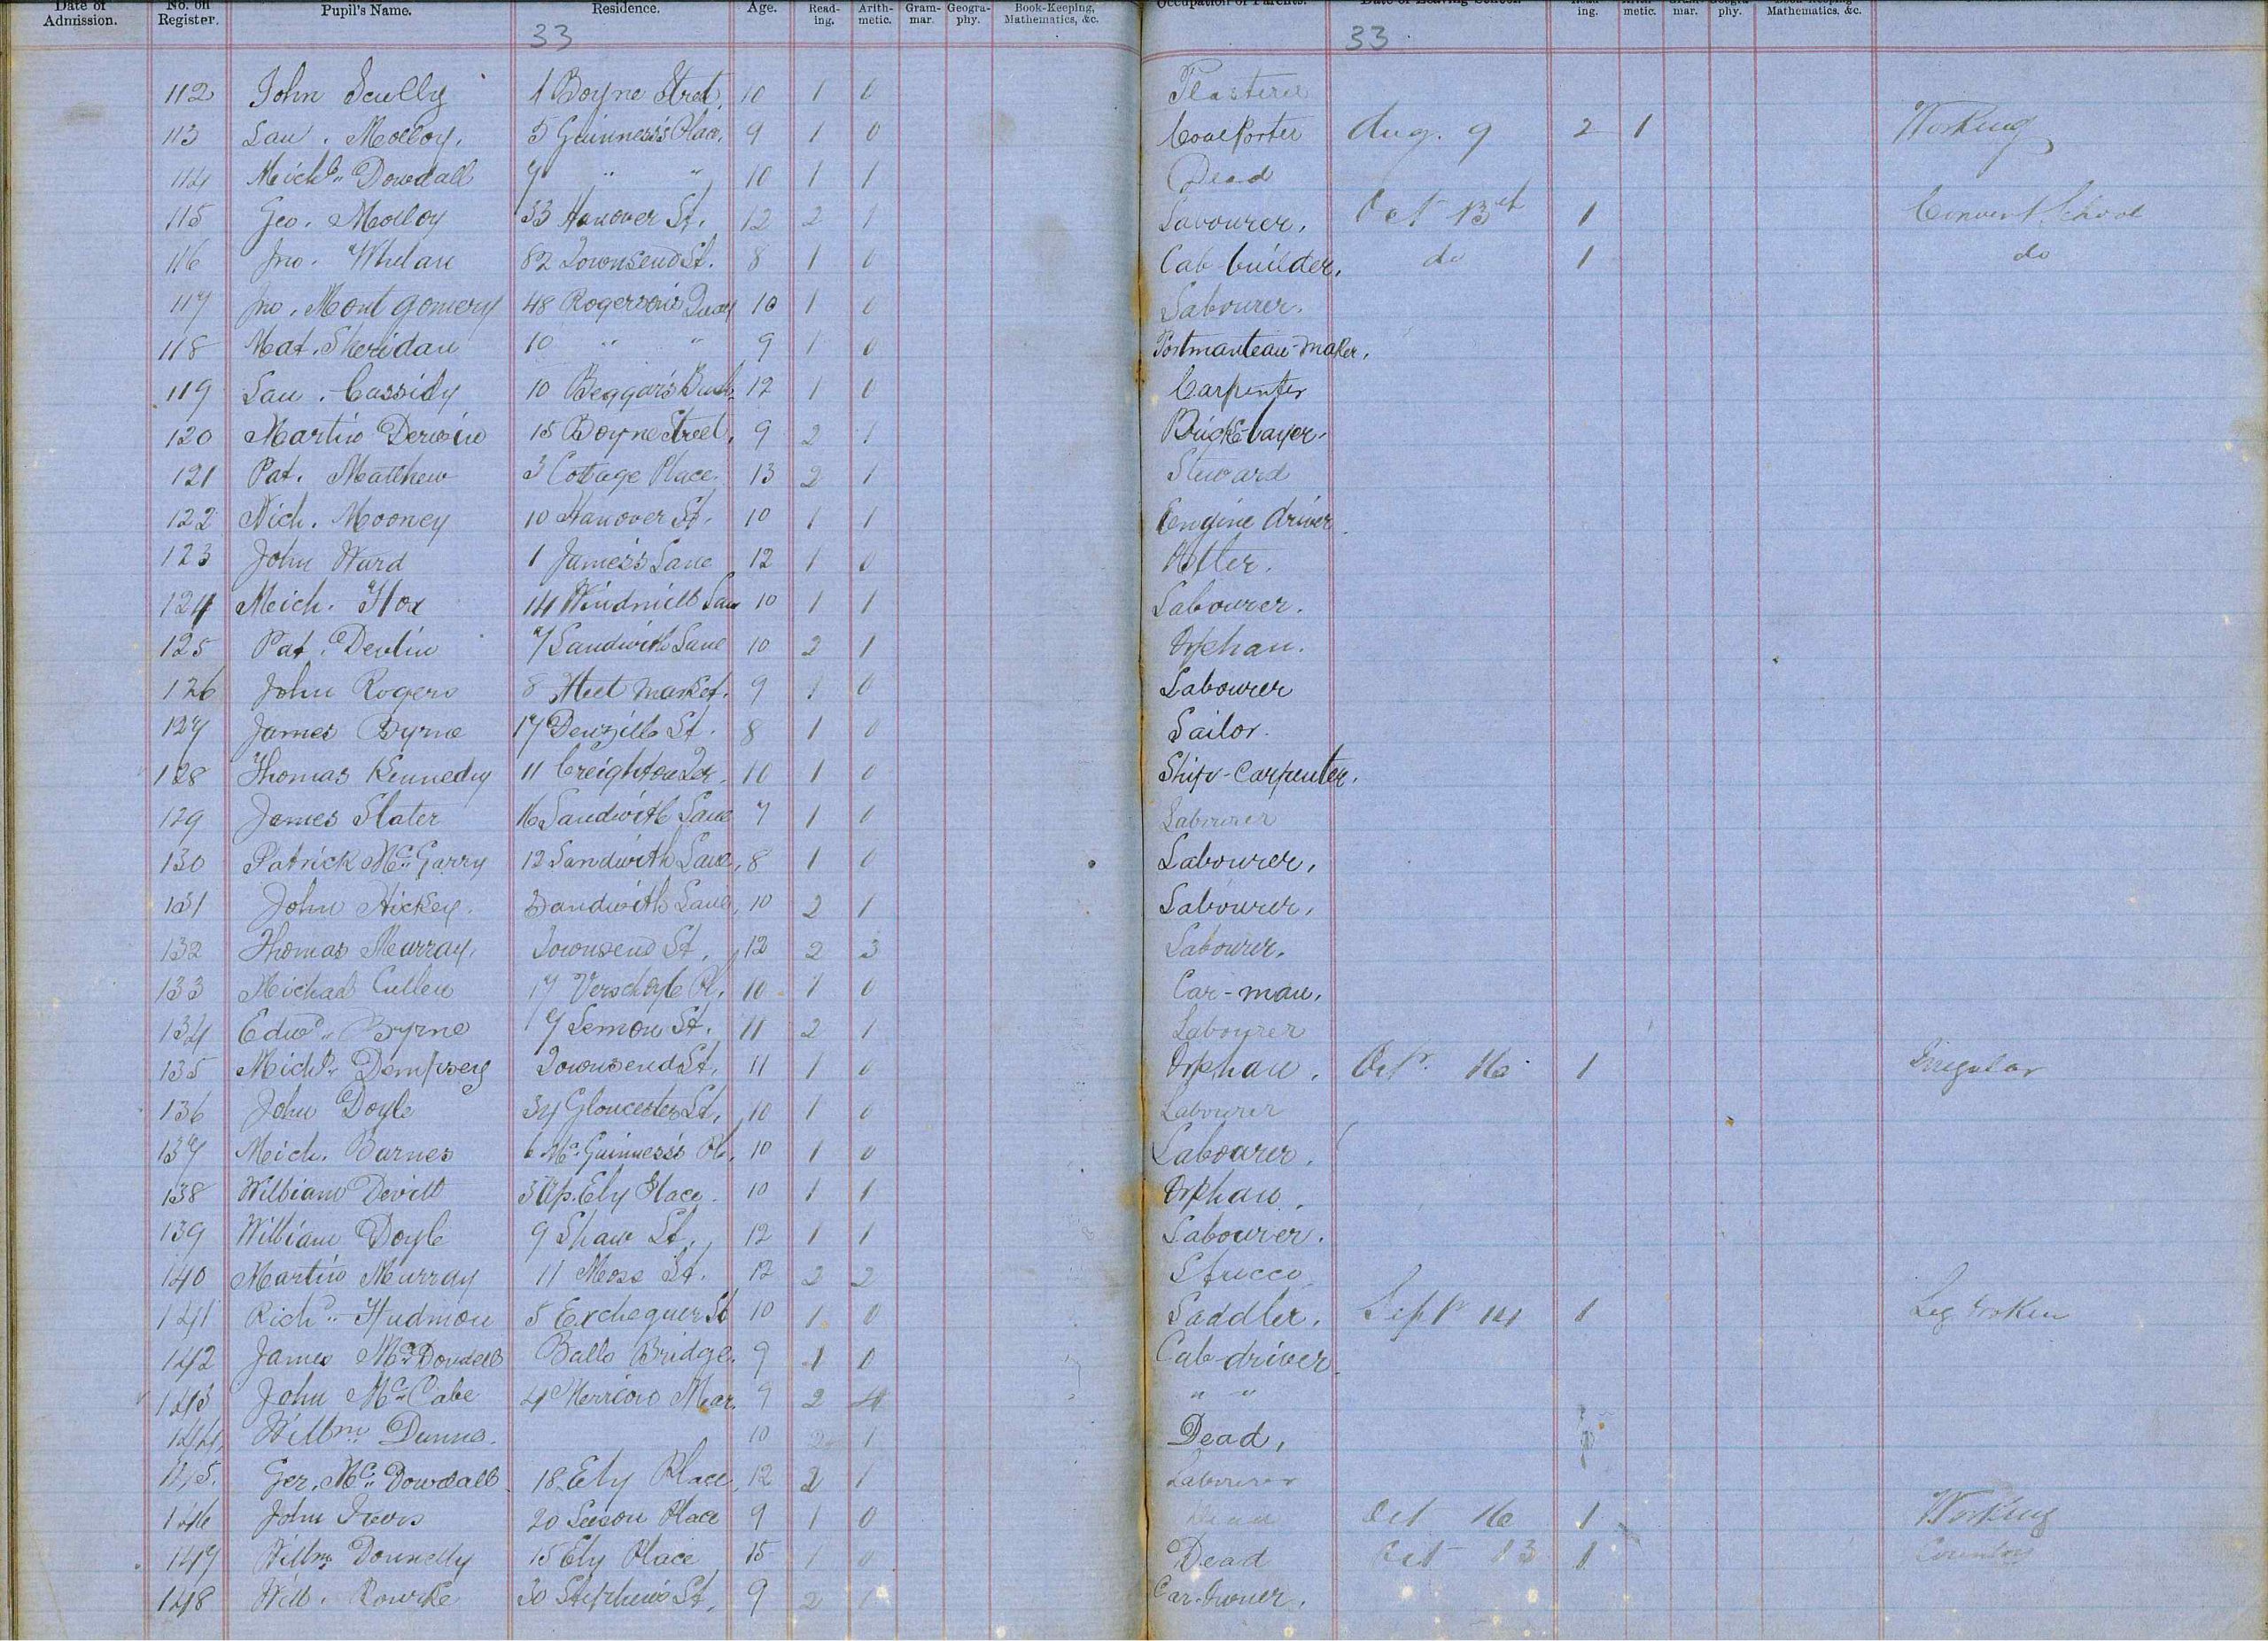 Date of Admission. No. on Register. Pupil's Name. Residence. Age. Read-ing. Arith-metic. Gram-mar. Geogra-phy. Book-Keeping, Mathematics, &c. Occupation of Parents. Date of Leaving School ing. metic. mar. phy. Mathematics, &c.
33 33
112 John Scully 1 Boyne Street, 10 1 0 Plasterer
113 Lau. Molloy, 5 Guinness's Place, 9 1 0 Coal Porter Aug. 9 2 1 Working
114 Michl. Dowdall 7 " " 10 1 1 Dead
115 Geo. Molloy 53 Hanover St. 12 2 1 Labourer, Oct 13th 1 Convent School
116 Jno. Whelan 82 Townsend St. 8 1 0 Cab-builder, do 1 do
117 Jno. Montgomery 48 Rogerson's Quay 10 1 0 Labourer.
118 Mat. Sheridan 10 " " 9 1 0 Portmanteau-maker,
119 Lau. Cassidy 10 Beggar's Bush, 12 1 0 Carpenter
120 Martin Derwin 15 Boyne Street, 9 2 1 Brick-layer.
121 Pat. Matthew 3 Cottage Place, 13 2 1 Steward
122 Nich. Mooney 10 Hanover St, 10 1 1 Engine driver.
123 John Ward 1 James's Lane 12 1 0 Ostler.
124 Mich. Fox 14 Windmill Lane 10 1 1 Labourer.
125 Pat. Devlin 7 Sandwith Lane 10 2 1 Orphan.
126 John Rogers 8 Fleet Market, 9 1 0 Labourer
127 James Byrne 17 Denzille St. 8 1 0 Sailor.
128 Thomas Kennedy 11 Creighton 10 1 0 Ship-Carpenter.
129 James Slater 16 Sandwith Lane 7 1 0 Labourer
130 Patrick Mc. Garry 12 Sandwith Lane, 8 1 0 Labourer,
131 John Hickey. Sandwith Lane, 10 2 1 Labourer,
132 Thomas Murray, Townsend St, 12 2 3 Labourer,
133 Michael Cullen 17 Verschoyle Pl, 10 1 0 Car-man,
134 Edwd. Byrne 7 Lemon St. 11 2 1 Labourer
135 Michl. Dempsey Townsend St, 11 1 0 Orphan. Octr. 16 1 Irregular
136 John Doyle 34 Gloucester St, 10 1 0 Labourer
137 Mich. Barnes 6 Mc. Guinness's Pl, 10 1 0 Labourer.
138 William Devitt 3 Up. Ely Place. 10 1 1 Orphan.
139 William Doyle 9 Shaw St, 12 1 1 Labourer.
140 Martin Murray 11 Moss St. 12 2 2 Stucco
141 Richd. Hudmon 5 Exchequer St 10 1 0 Saddler. Septr 14 1 Leg broken
142 James Mc. Donnell Balls Bridge. 9 1 0 Cab-driver
143 John Mc. Cabe 4 Merrion Mar. 9 2 4 " "
144 Willm. Dunne. 10 2 1 Dead,
145. Ger. Mc. Dowdall 18 Ely Place, 12 2 1 Labourer
146 John 20 Leeson Place 9 1 0 Dead Oct 16 1 Working
147 Willm. Donnelly 15 Ely Place 15 1 0 Dead Oct 13 1 Country
148 Will. Rourke 30 Stephen's St, 9 2 1 Car-Owner.